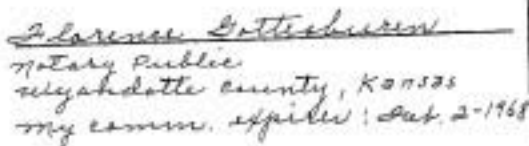 Florence Gottesburen
Notary Public
Wyandotte County, Kansas
my comm. expires: 2-1968